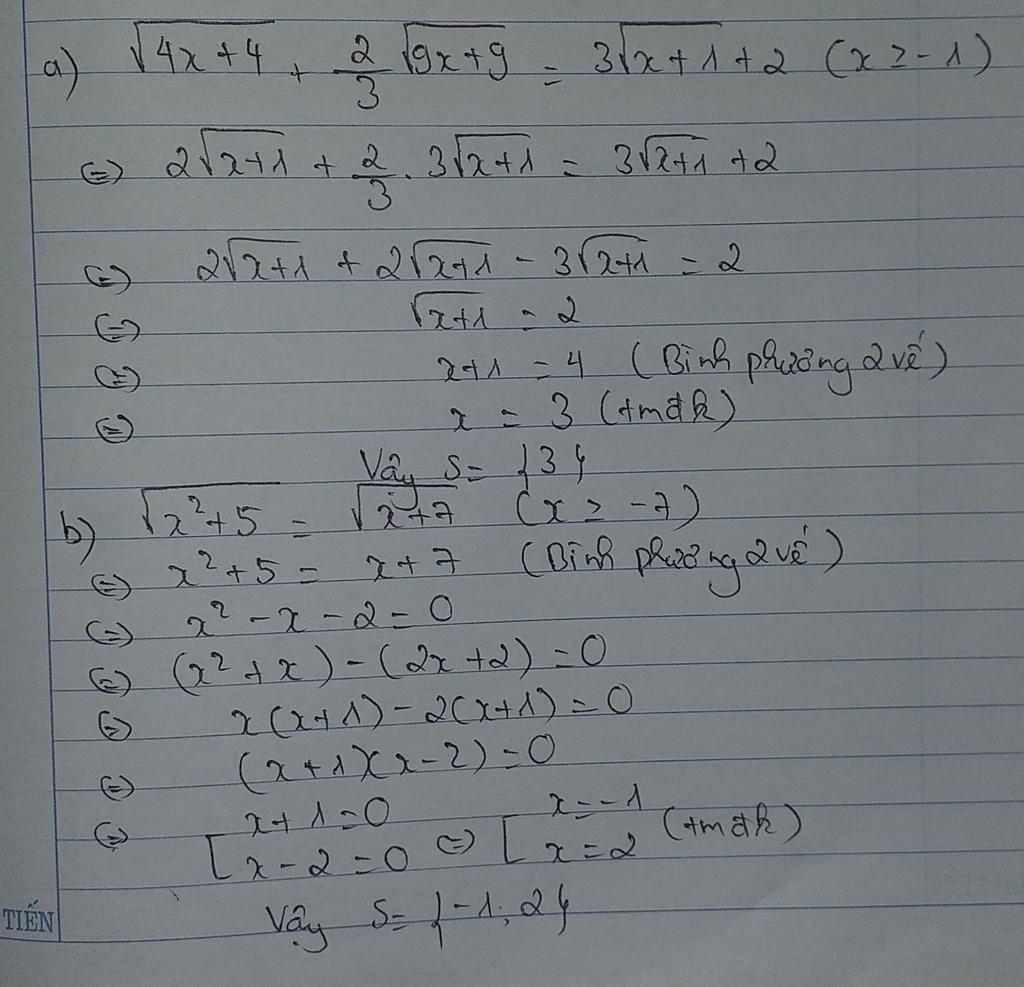 a) √(4x+4) + 2/3 √(9x+9) = 3√(x+1) + 2 (x ≥ -1)
⇔ 2√(x+1) + 2/3 . 3√(x+1) = 3√(x+1) + 2
⇔ 2√(x+1) + 2√(x+1) - 3√(x+1) = 2
⇔ √(x+1) = 2
⇔ x+1 = 4 (Bình phương 2 vế)
⇔ x = 3 (tmđk)
Vậy S = {3}
b) √(x²+5) = √(x+7) (x ≥ -7)
⇔ x²+5 = x+7 (Bình phương 2 vế)
⇔ x² - x - 2 = 0
⇔ (x² + x) - (2x+2) = 0
⇔ x(x+1) - 2(x+1) = 0
⇔ (x+1)(x-2) = 0
⇔ [ x+1 = 0 ⇔ [ x = -1 (tmđk)
x-2 = 0 x = 2
Vậy S = {-1; 2}
TIẾN